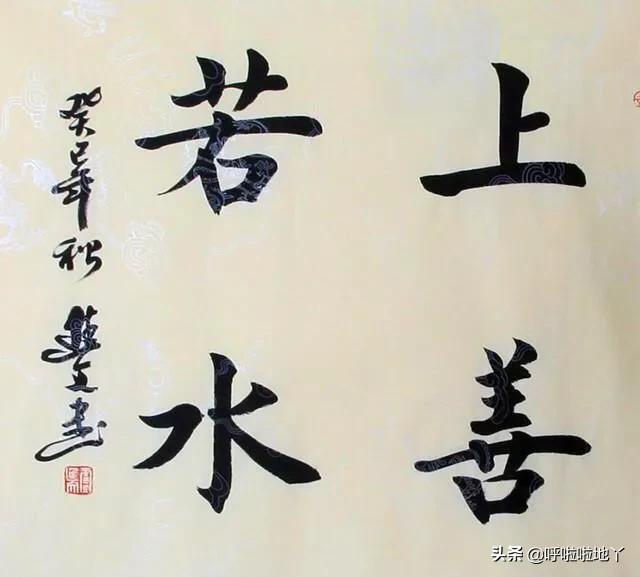 上善
若水
癸巳年秋
文书
头条 @呼啦啦地丫